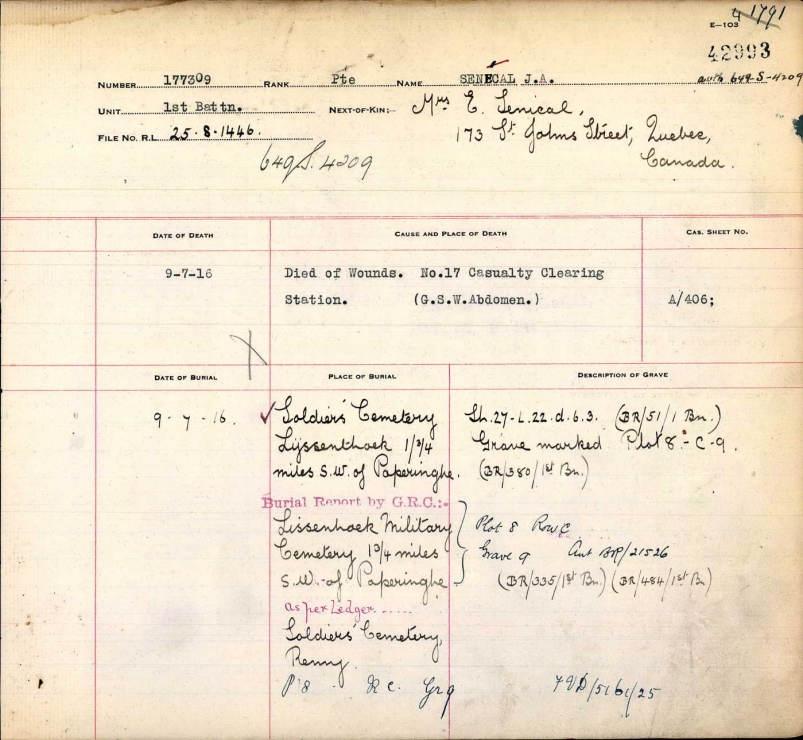 4 1791
E-103
42993
NUMBER 177309 RANK Pte NAME SENÉCAL J.A. auth 649-S-4209
UNIT 1st Battn. NEXT-OF-KIN:- Mrs E. Senical,
FILE No. R.L. 25-8-1446. 173 St Johns Street, Quebec,
Canada.
649.S.4209
DATE OF DEATH CAUSE AND PLACE OF DEATH CAS. SHEET NO.
9-7-16 Died of Wounds. No.17 Casualty Clearing
Station. (G.S.W.Abdomen.) A/406;
DATE OF BURIAL PLACE OF BURIAL DESCRIPTION OF GRAVE
9-7-16. Soldiers' Cemetery Sh.27-L.22.d.6.3. (BR/51/1 Bn.)
Lijssenthoek 1 3/4 Grave marked Plot 8-C-9.
miles S.W. of Paperinghe. (BR/380/1st Bn)
Burial Report by G.R.C.:-
Lissenhoek Military Plot 8 Row C
Cemetery 1 3/4 miles Grave 9 Aut BR/21526
S.W. of Paperinghe (BR/335/1st Bn) (BR/484/1st Bn)
As per Ledger.....
Soldiers' Cemetery,
Remy.
P'8 R C. Gr 9